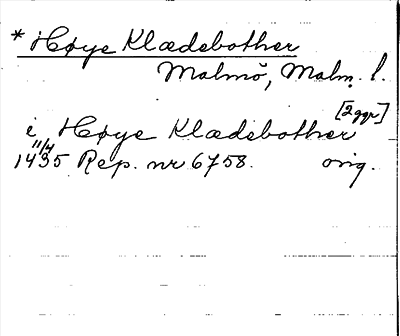 * Høye Klædebother
Malmö, Malm. l.
i Høye Klædebother [2 ggr]
11/4 1435 Rep. nr 6758. orig.